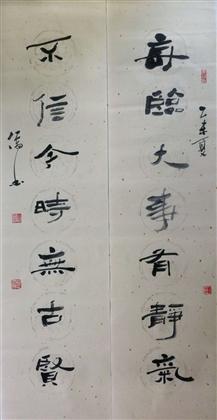 每臨大事有靜氣
乙未夏
不信今時無古賢